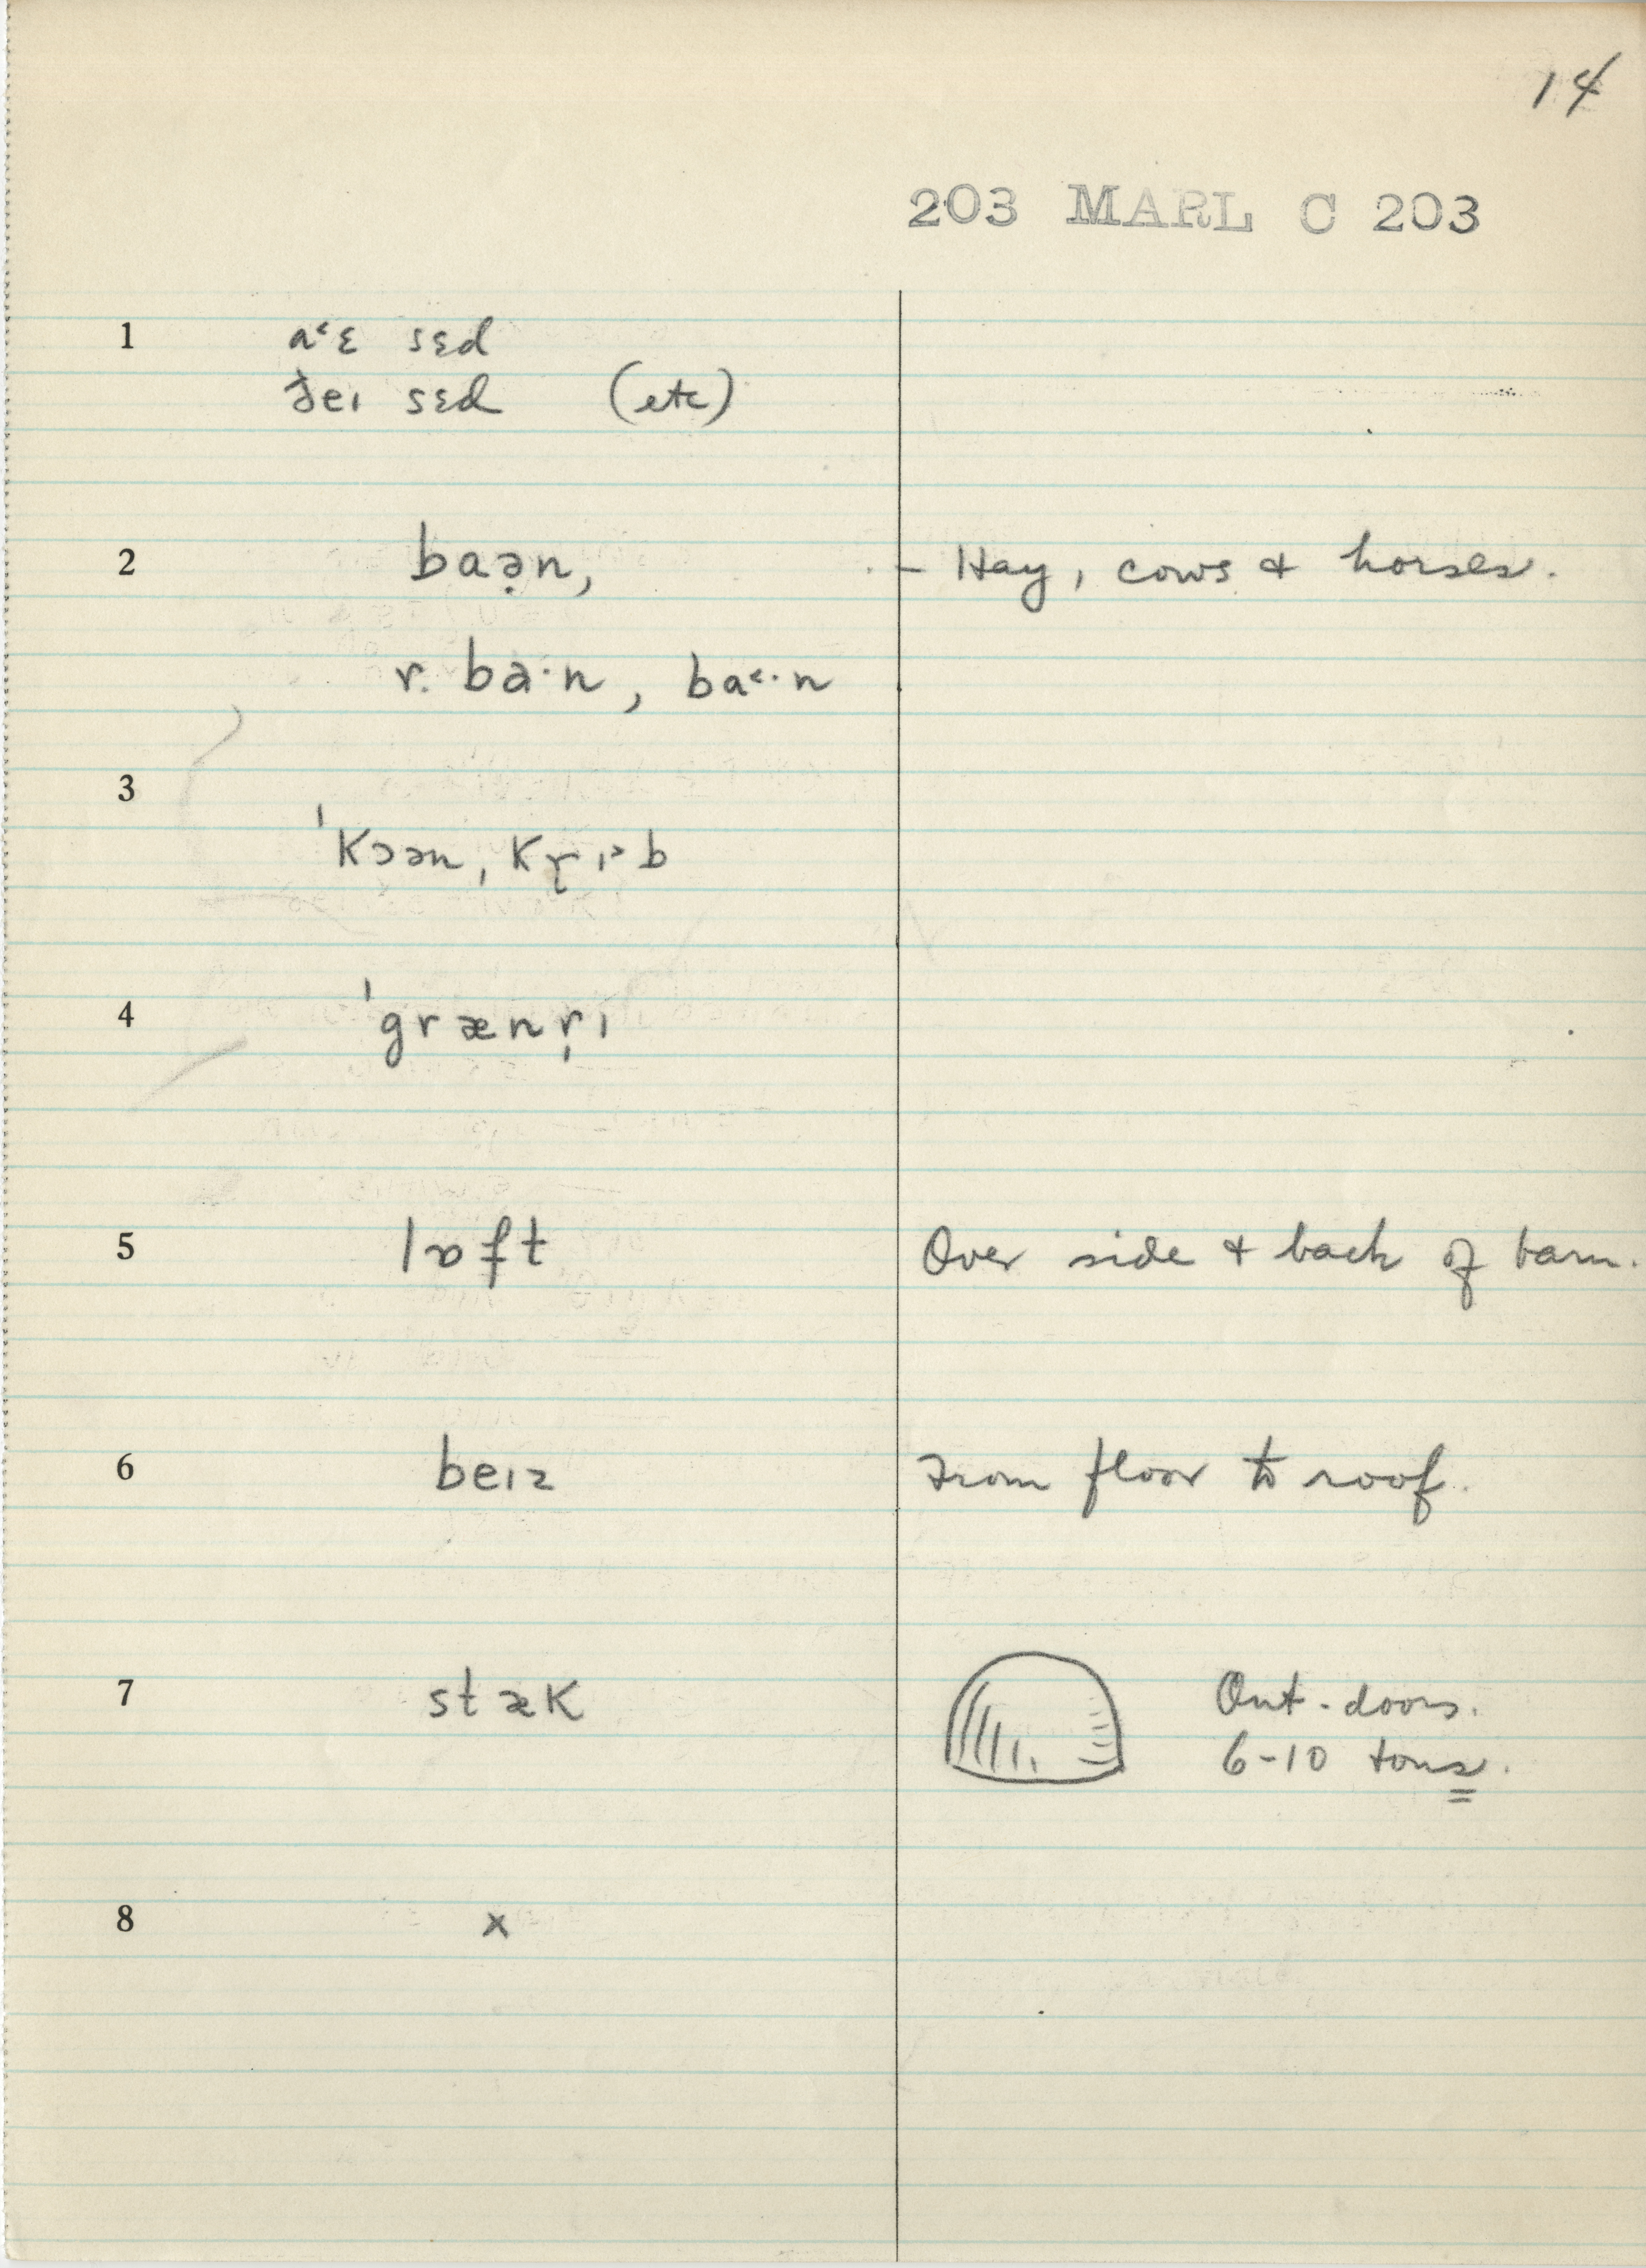 14
203 MARL C 203
1 a˂ɛ sɛd
ðeɪ sɛd (etc)
2 baə̣n, – Hay, cows & horses.
r. ba·n, ba˂·n
3
ˈkɔən, kɽɪ˃b
4 ˈgrænṛɪ
5 lɒft Over side & back of barn.
6 beɪz From floor to roof.
7 stæk Out-doors.
6-10 tons.
8 x